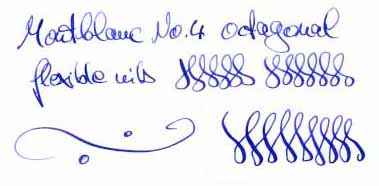 Montblanc No. 4 octagonal
flexible nib